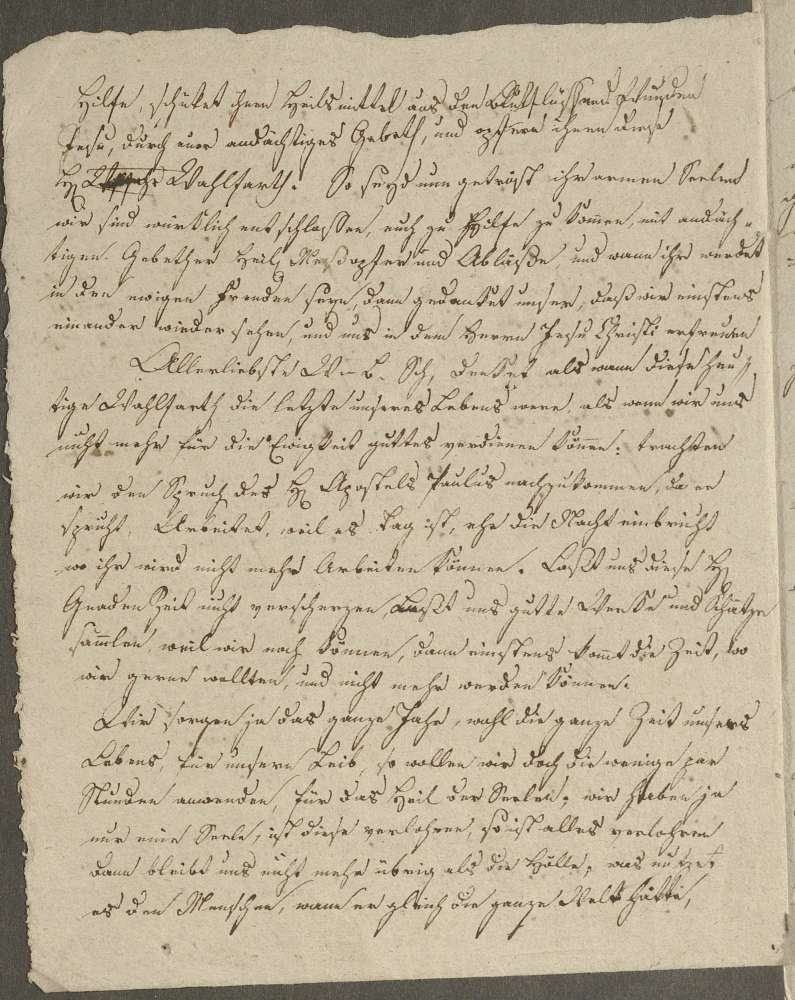 Hilfe, schücket ihnen Heilsmittel aus den Blutflüssend Wunden
Jesu, durch euer andächtiges Gebeth, und opfere ihnen diese
H. Wahlfarth. So seyd nun getröst ihr armen Seelen
wir sind würklich entschlossen, euch zu Hilfe zu kom̄en, mit andäch-
tigen Gebether Heil. Meßopfer und Abläße und wann ihr werdet
in den ewigen Freuden seyn, dann gedenket unser, daß wir einstens
einander wieder sehen, und uns in dem Herrn Jesu Christi erfreuen
Allerliebste W- b. Sch, denket als wann diese heu-
tige Wahlfarth die letzte unseres Lebens were, als wenn wir uns
nicht mehr für die Ewigkeit guttes verdienen könen: trachten
wir den Spruch des H. Apostels Paulus nachzukommen, da er
spricht, Arbeitet, weil es Tag ist, ehe die Nacht einbricht
wo ihr wird nicht mehr Arbeiten können. Laßt uns diese H.
Gnaden Zeit nicht verscherzen, Laßt uns gutte Werke und Schätze
sam̄len, weil wir noch können, dann einstens kom̄t die Zeit, wo
wir gerne wollten, und nicht mehr werden können.
Wir sorgen ja das ganze Jahr, wohl die ganze Zeit unsers
Lebens, für unsern Leib, so wollen wir doch die wenige par
Stunden anwenden, für das Heil der Seelen, wir haben ja
nur eine Seele, ist diese verlohren, so ist alles verlohren
dann bleibt uns nicht mehr übrig als die Hölle, was nutzet
es den Menschen, wann er gleich die ganze Welt hätte,